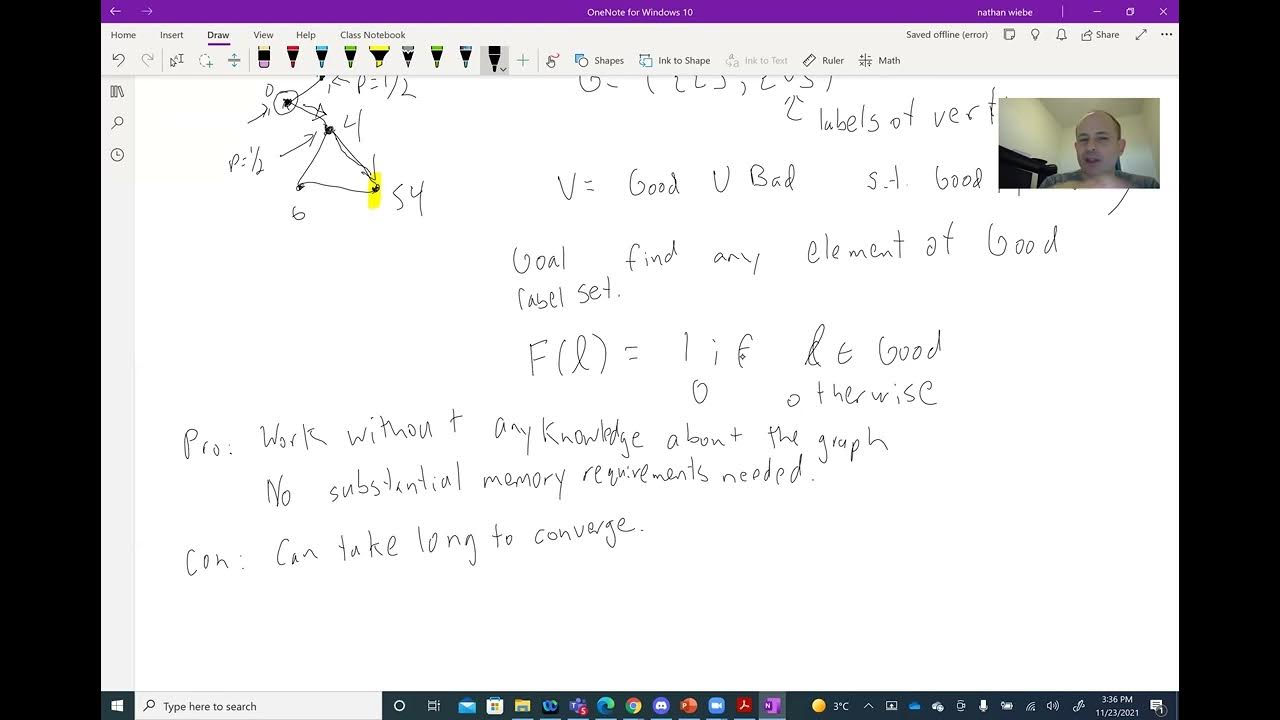 OneNote for Windows 10
nathan wiebe
Home Insert Draw View Help Class Notebook
Saved offline (error)
Share
Shapes
Ink to Shape
Ink to Text
Ruler
Math
P=1/2
labels of
0
4
P=1/2
6
54
V= Good U Bad s.t. Good
Goal find any element of Good
label set.
F(l) = 1 if l ∈ Good
0 otherwise
Pro: Work without any knowledge about the graph
No substantial memory requirements needed.
Con: Can take long to converge.
Type here to search
3°C
3:36 PM
11/23/2021